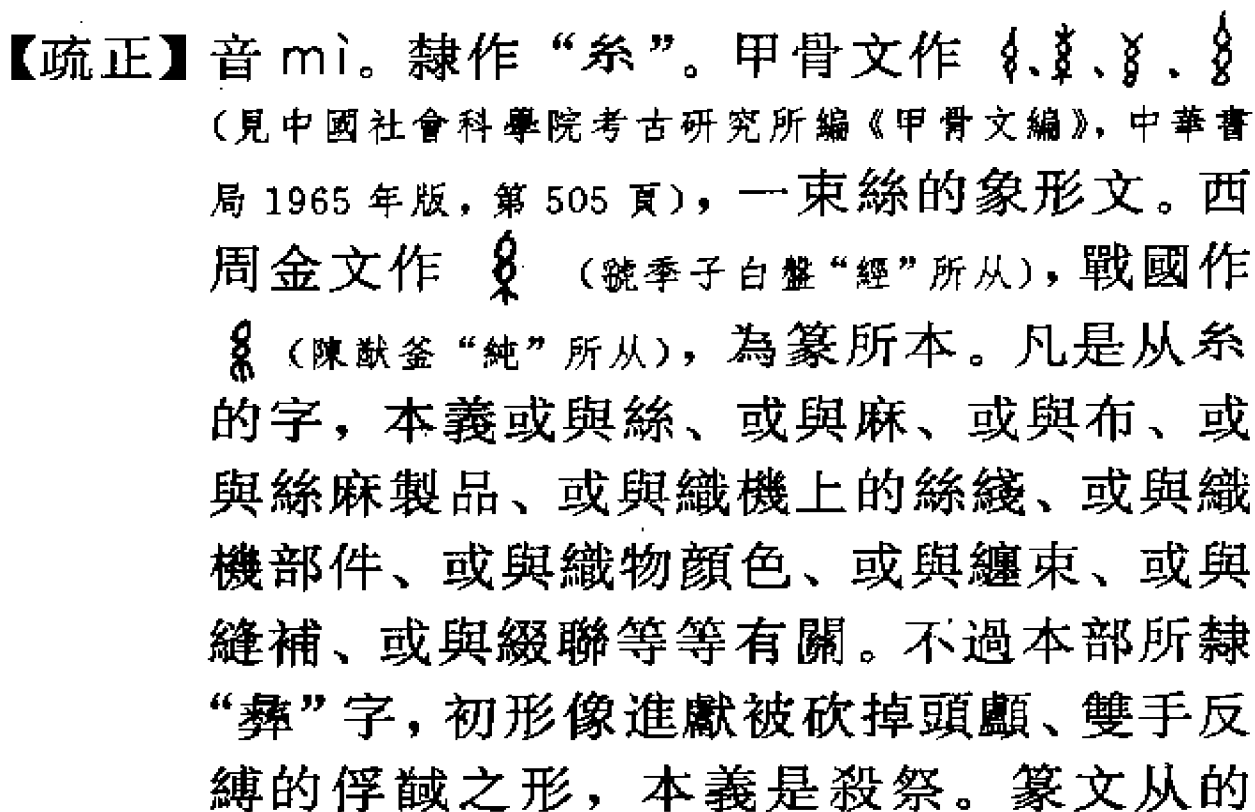 【疏正】音 mì。隸作“糸”。甲骨文作 、、、
（見中國社會科學院考古研究所編《甲骨文編》，中華書
局 1965 年版，第 505 頁），一束絲的象形文。西
周金文作 （虢季子白盤“經”所从），戰國作
（陳猷釜“純”所从），為篆所本。凡是从糸
的字，本義或與絲、或與麻、或與布、或
與絲麻製品、或與織機上的絲綫、或與織
機部件、或與織物顏色、或與纏束、或與
縫補、或與綴聯等等有關。不過本部所隸
“彝”字，初形像進獻被砍掉頭顱、雙手反
縛的俘馘之形，本義是殺祭。篆文从的